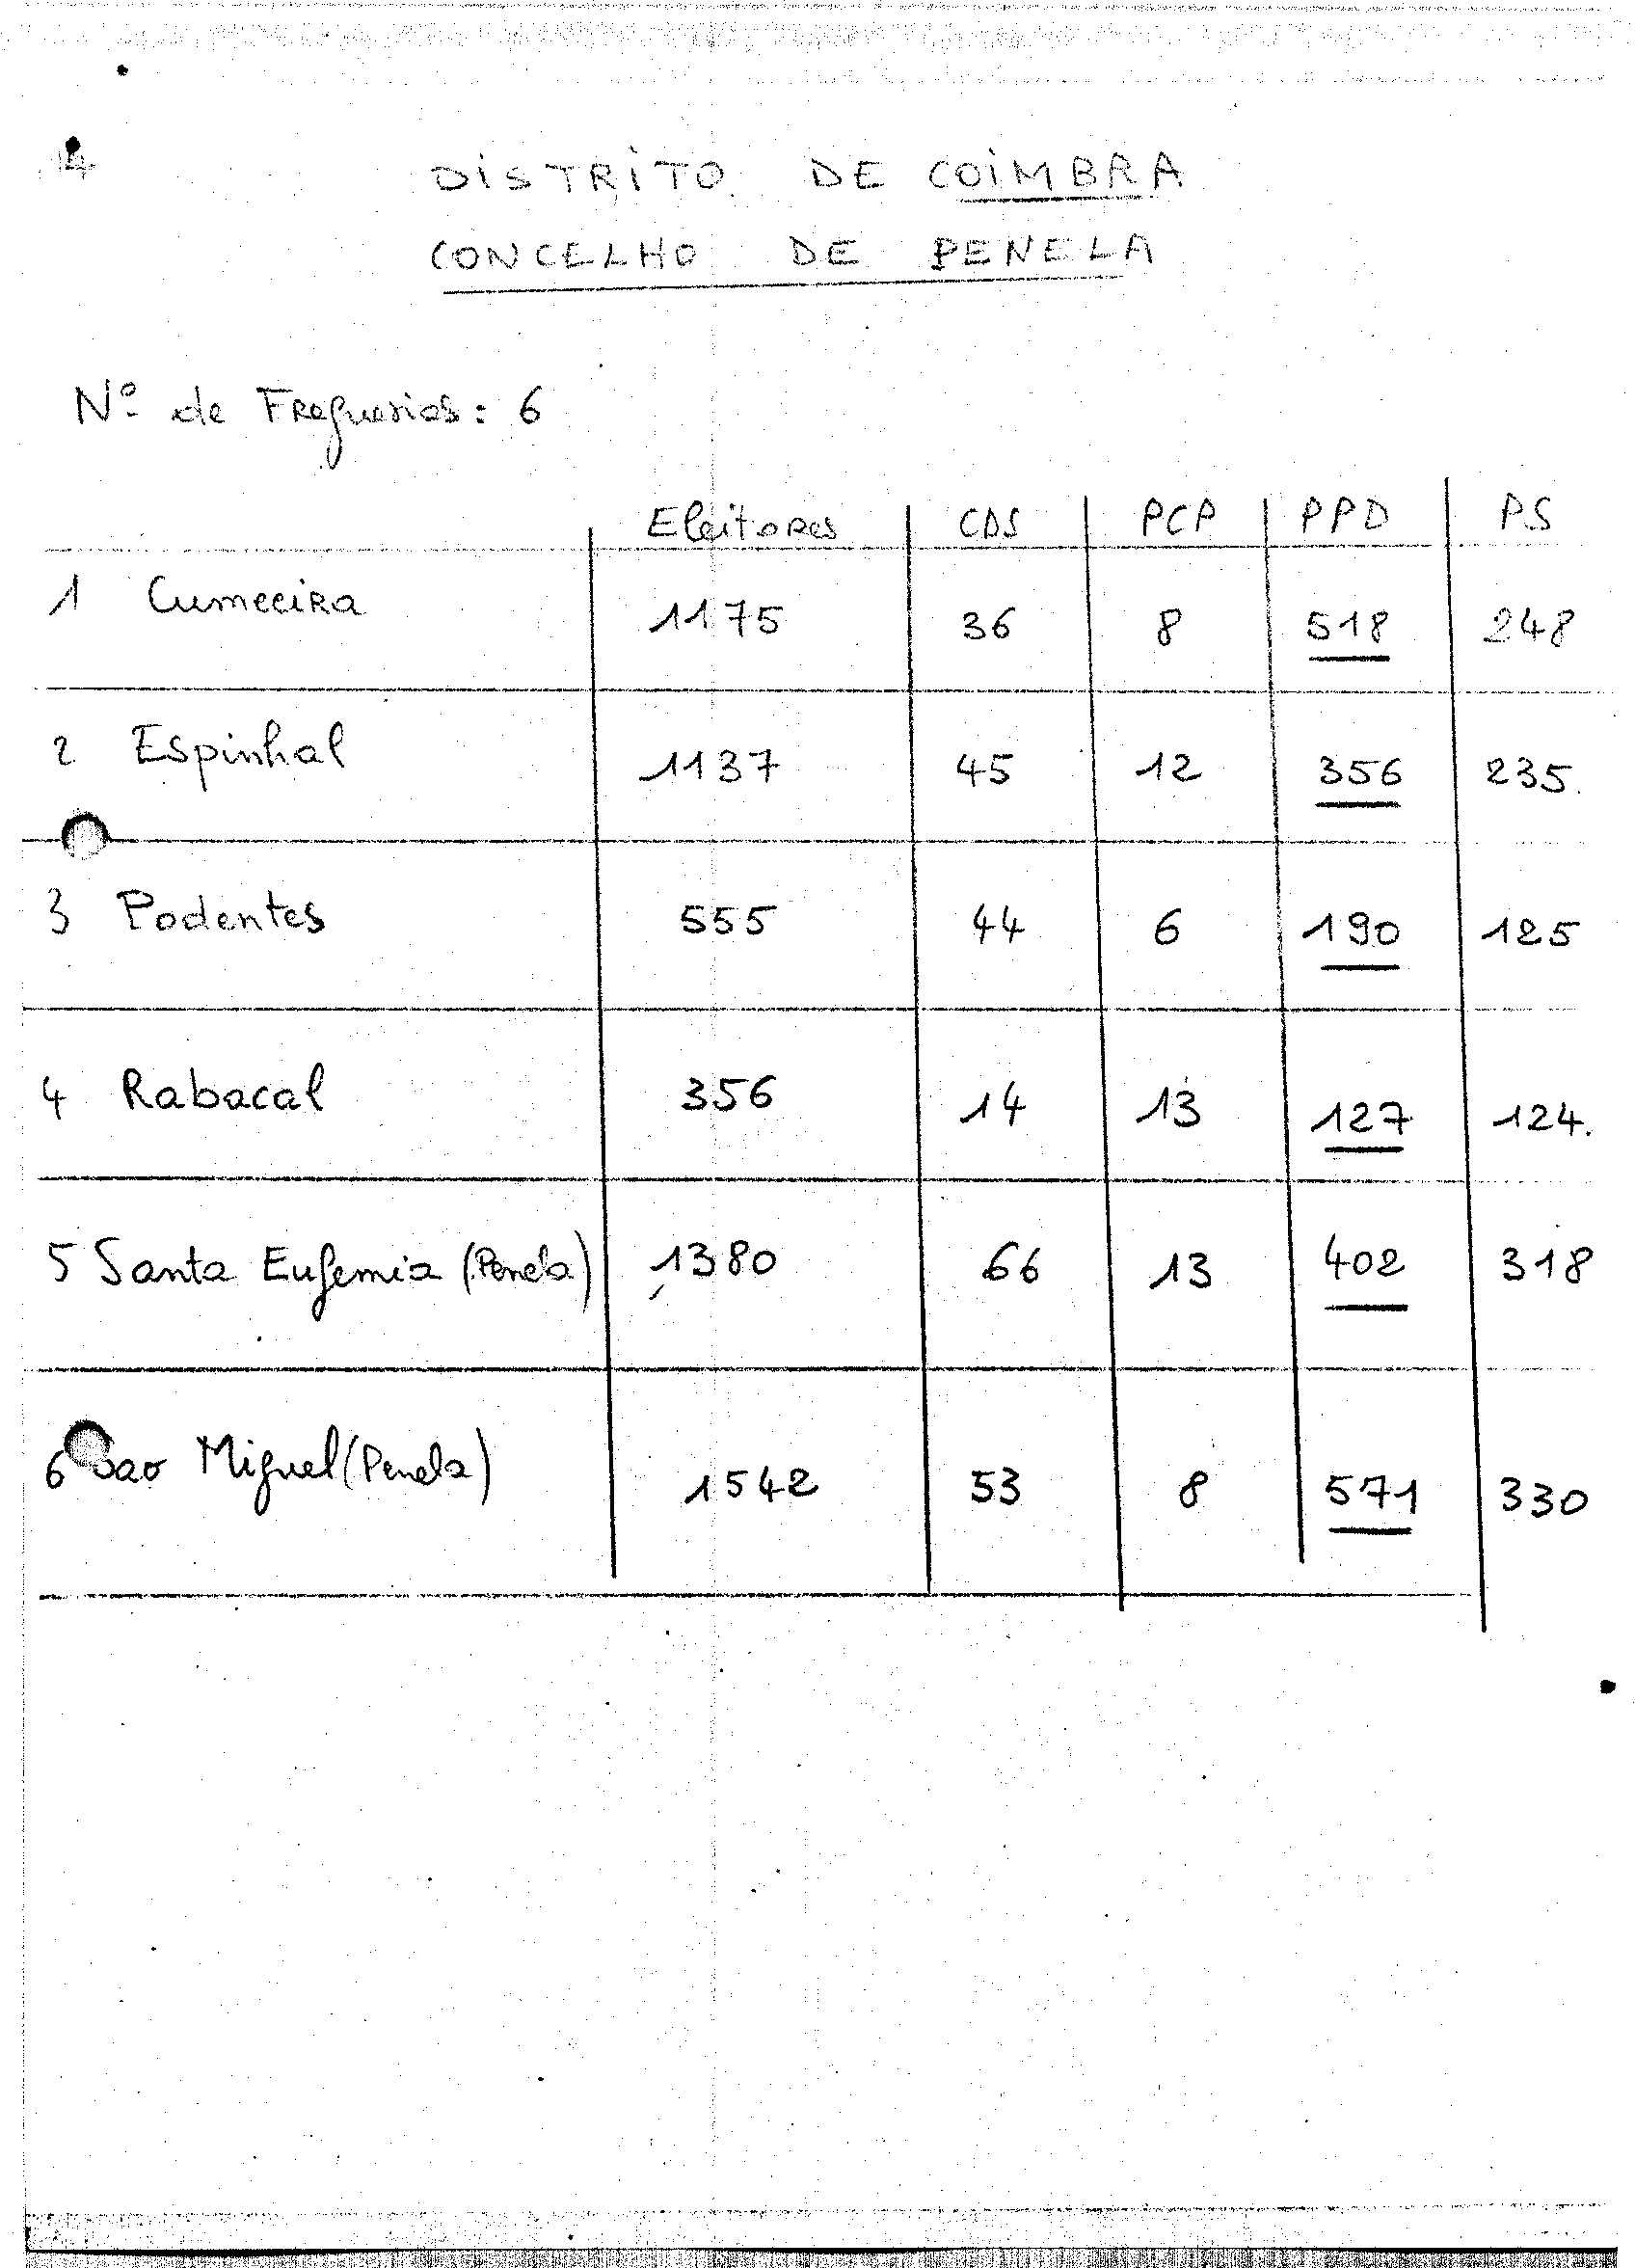 14
DISTRITO DE COIMBRA
CONCELHO DE PENELA
Nº de Freguesias: 6
Eleitores CDS PCP PPD PS
1 Cumeeira 1175 36 8 518 248
2 Espinhal 1137 45 12 356 235.
3 Podentes 555 44 6 190 125
4 Rabacal 356 14 13 127 124.
5 Santa Eufemia (Penela) 1380 66 13 402 318
6 Sao Miguel (Penela) 1542 53 8 571 330